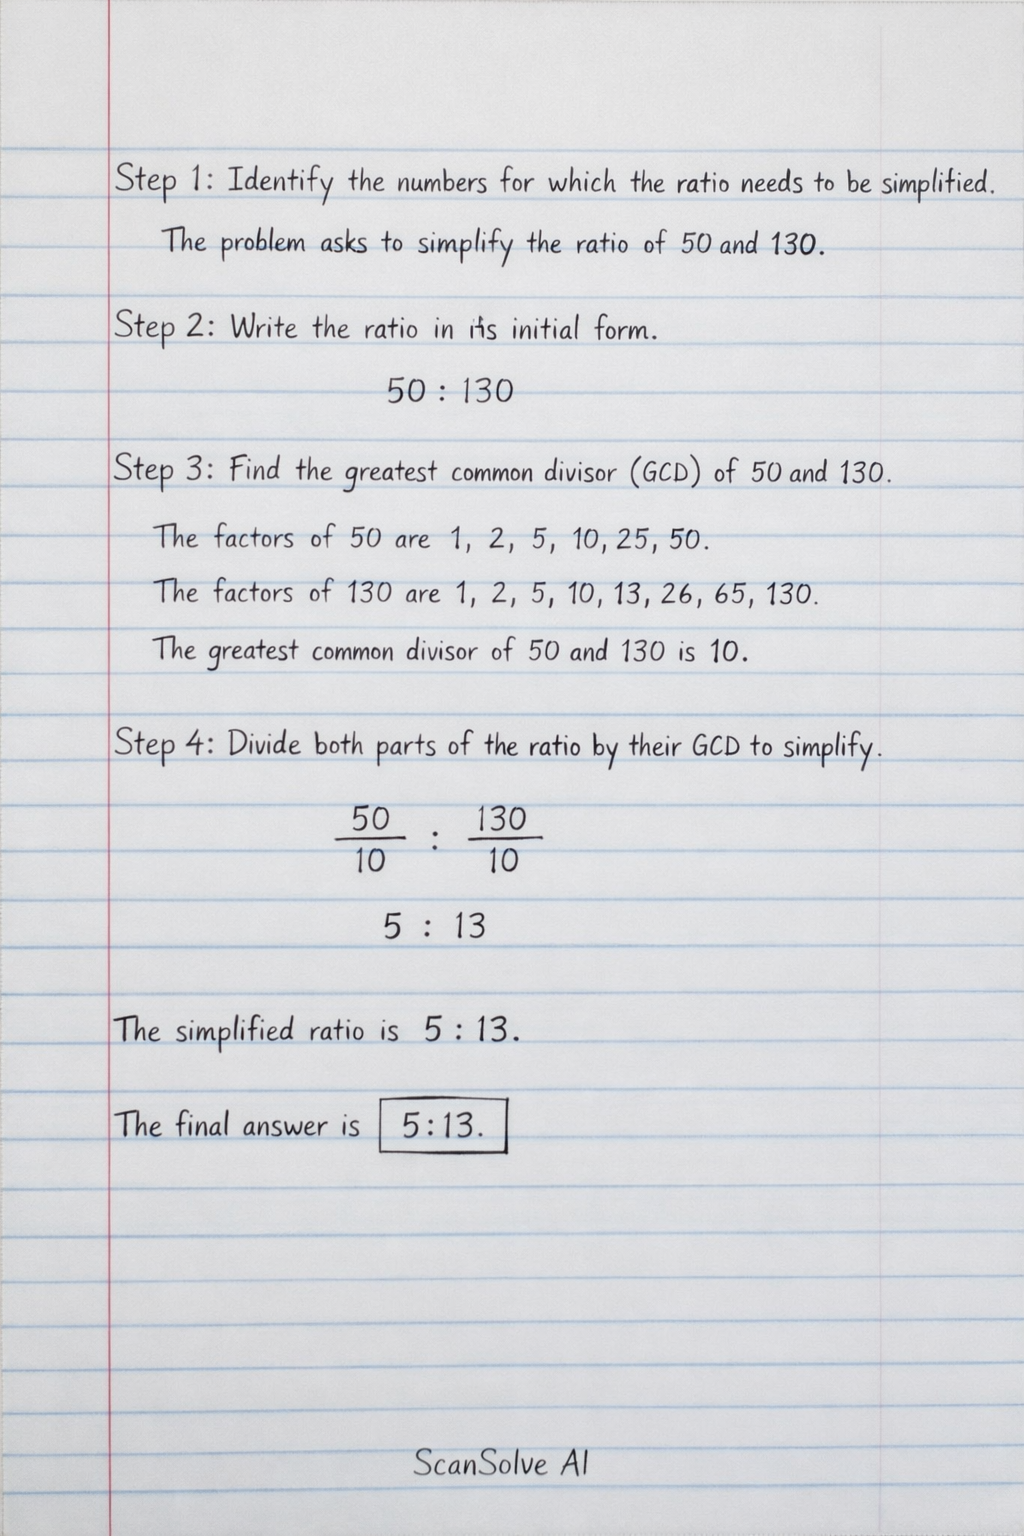 Step 1: Identify the numbers for which the ratio needs to be simplified.
The problem asks to simplify the ratio of 50 and 130.
Step 2: Write the ratio in its initial form.
50 : 130
Step 3: Find the greatest common divisor (GCD) of 50 and 130.
The factors of 50 are 1, 2, 5, 10, 25, 50.
The factors of 130 are 1, 2, 5, 10, 13, 26, 65, 130.
The greatest common divisor of 50 and 130 is 10.
Step 4: Divide both parts of the ratio by their GCD to simplify.
50/10 : 130/10
5 : 13
The simplified ratio is 5 : 13.
The final answer is 5:13.
ScanSolve AI